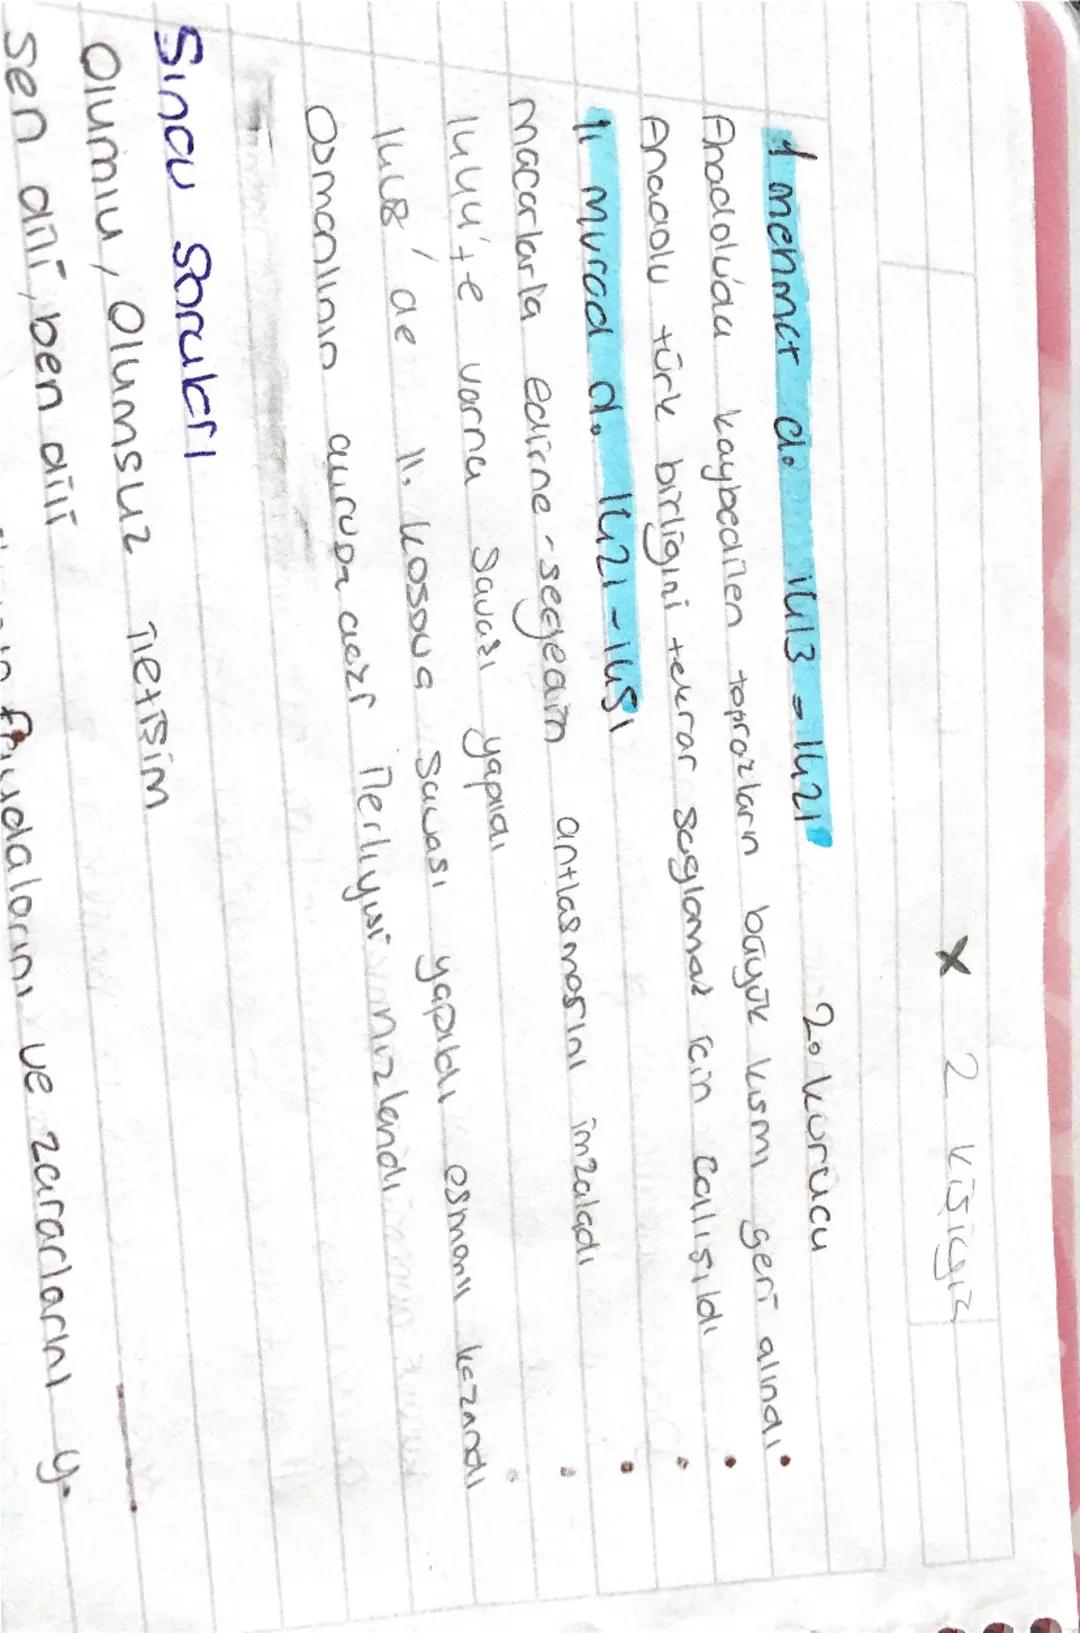 x 2 kişiyiz
1 mehmet d. 1413 - 1421 2. kurucu
Anadoluda kaybedilen toprakların büyük kısmı geri alındı
Anadolu türk birliğini tekrar sağlamak için çalışıldı
II murad d. 1421 - 1451
macarlarla edirne - segedin antlaşmasını imzaladı
1444'te varna savaşı yapıldı
1448' de II. kosova savaşı yapıldı osmanlı kazandı
Osmanlının avrupadaki ilerleyişi hızlandı
Sınav soruları
Olumlu, Olumsuz iletişim
sen dili, ben dili
faydalarını ve zararlarını y.